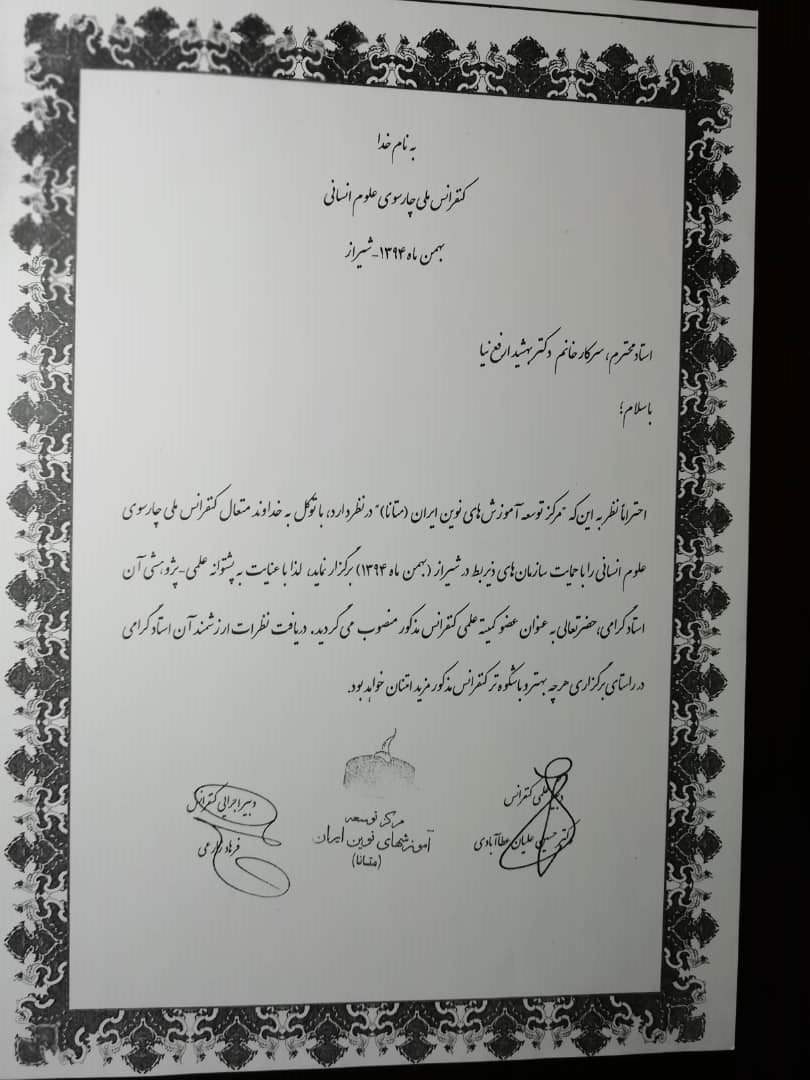 به نام خدا
کنفرانس ملی چارسوی علوم انسانی
بهمن ماه ۱۳۹۴-شیراز
استاد محترم، سرکار خانم دکتر بهشید ارفع نیا
با سلام؛
احتراماً نظر به این که "مرکز توسعه آموزش های نوین ایران (متانا)" در نظر دارد، با توکل به خداوند متعال کنفرانس ملی چارسوی
علوم انسانی را با حمایت سازمان های ذیربط در شیراز (بهمن ماه ۱۳۹۴) برگزار نماید، لذا با عنایت به پشتوانه علمی-پژوهشی آن
استاد گرامی، حضرتعالی به عنوان عضو کمیته علمی کنفرانس مذکور منصوب می گردید. دریافت نظرات ارزشمند آن استاد گرامی
در راستای برگزاری هرچه بهتر و باشکوه تر کنفرانس مذکور مزید امتنان خواهد بود.
دبیر علمی کنفرانس
علیان عطاآبادی
مرکز توسعه
آموزشهای نوین ایران
(متانا)
دبیر اجرایی کنفرانس
فرهاد